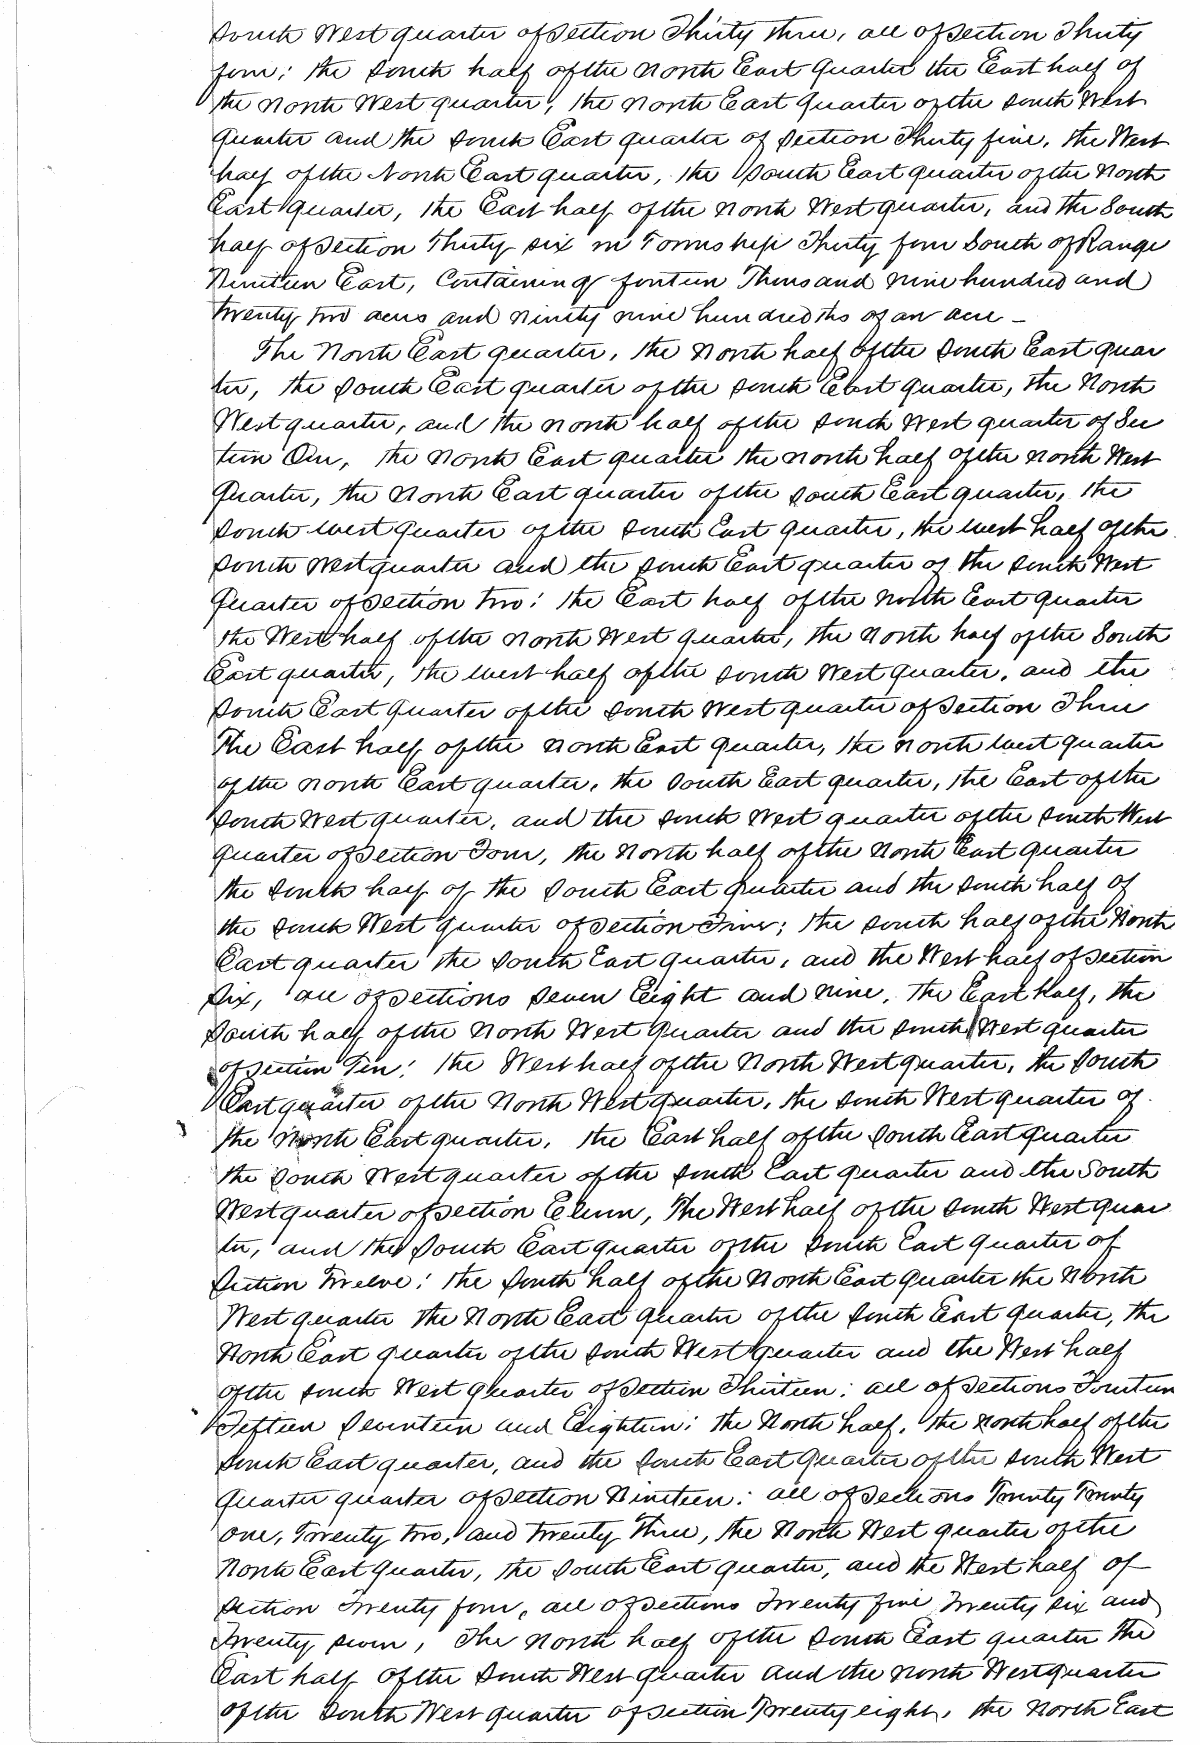 South West quarter of Section Thirty three, all of Section Thirty
four; the South half of the North East Quarter the East half of
the North West quarter, the North East Quarter of the South West
Quarter and the South East quarter of Section Thirty five, the West
half of the North East quarter, the South East quarter of the North
East quarter, the East half of the North West quarter, and the South
half of Section Thirty six in Township Thirty four South of Range
Nineteen East, Containing fourteen Thousand nine hundred and
twenty two acres and ninety nine hundredths of an acre –
The North East quarter, the North half of the South East quar
ter, the South East quarter of the South East quarter, the North
West quarter, and the North half of the South West quarter of Sec
tion One, the North East quarter the North half of the North West
Quarter, the North East quarter of the South East quarter, the
South West quarter of the South East quarter, the West half of the
South West quarter and the South East quarter of the South West
Quarter of Section two: the East half of the North East quarter
the West half of the North West quarter, the North half of the South
East quarter, the West half of the South West quarter, and the
South East Quarter of the South West quarter of Section Three
The East half of the North East quarter, the North West quarter
of the North East quarter, the South East quarter, the East of the
South West quarter, and the South West quarter of the South West
quarter of Section Four, the North half of the North East quarter
the South half of the South East quarter and the South half of
the South West quarter of Section Five; the South half of the North
East quarter the South East quarter, and the West half of Section
Six, all of Sections Seven Eight and nine, The East half, the
South half of the North West Quarter and the South West quarter
of Section Ten: the West half of the North West quarter, the South
East quarter of the North West quarter, the South West quarter of
the North East quarter, the East half of the South East quarter
the South West quarter of the South East quarter and the South
West quarter of Section Eleven, The West half of the South West quar
ter, and the South East quarter of the South East quarter of
Section Twelve: the South half of the North East quarter the North
West quarter the North East quarter of the South East quarter, the
North East quarter of the South West quarter and the West half
of the South West quarter of Section Thirteen: all of Sections Fourteen
Fifteen Seventeen and Eighteen: the North half, the North half of the
South East quarter, and the South East Quarter of the South West
Quarter quarter of Section Nineteen: all of Sections Twenty Twenty
one, Twenty two, and Twenty Three, the North West quarter of the
North East quarter, the South East quarter, and the West half of
Section Twenty four, all of Sections Twenty five Twenty six and
Twenty seven, The North half of the South East quarter the
East half of the South West quarter and the North West quarter
of the South West quarter of Section Twenty eight, the North East